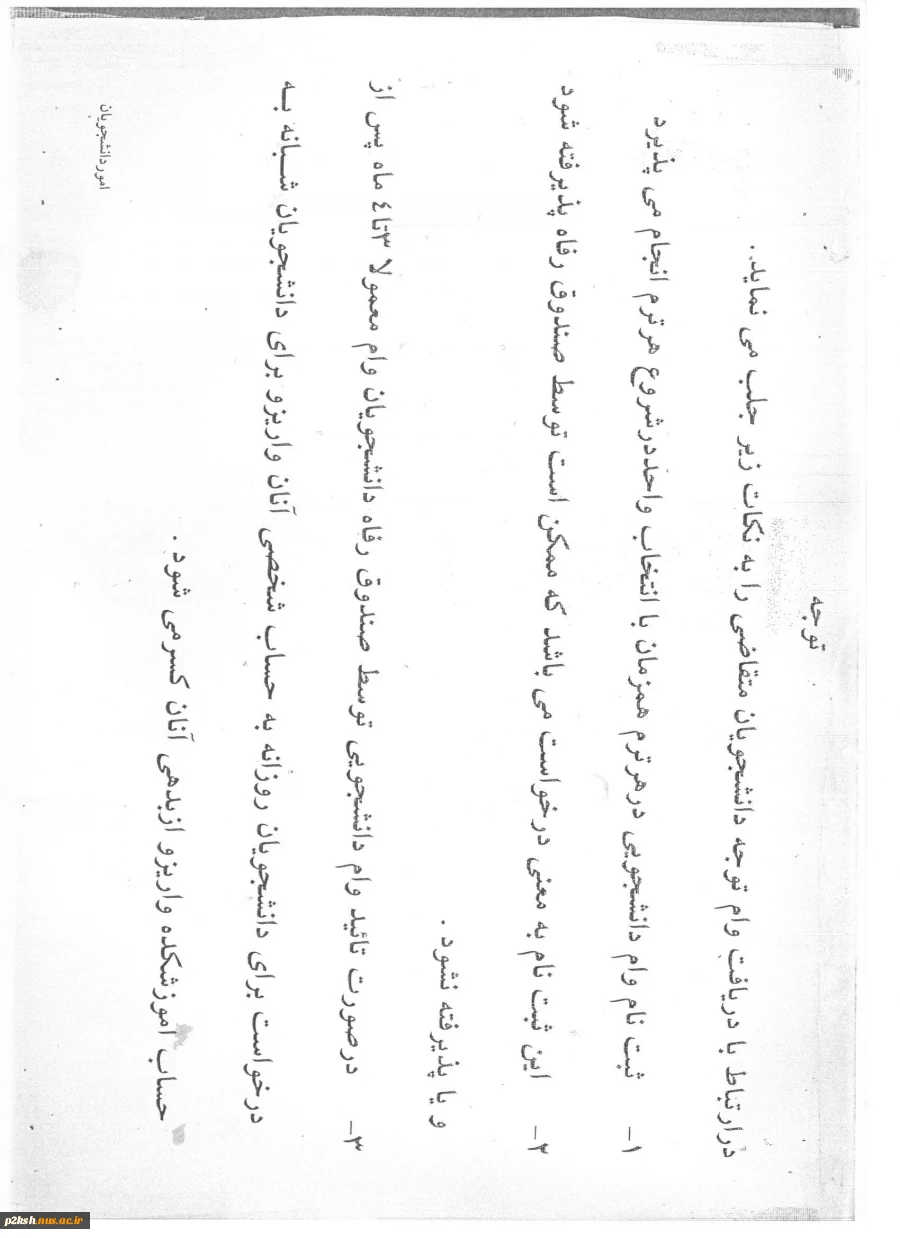 توجه
در ارتباط با دریافت وام توجه دانشجویان متقاضی را به نکات زیر جلب می نماید..
۱- ثبت نام وام دانشجویی در هر ترم همزمان با انتخاب واحد در شروع هر ترم انجام می پذیرد
۲- این ثبت نام به معنی درخواست می باشد که ممکن است توسط صندوق رفاه پذیرفته شود
و یا پذیرفته نشود .
۳- در صورت تائید وام دانشجویی توسط صندوق رفاه دانشجویان وام معمولا ۳تا٤ ماه پس از
درخواست برای دانشجویان روزانه به حساب شخصی آنان واریز و برای دانشجویان شبانه به
حساب اموزشکده واریز و از بدهی آنان کسر می شود .
امور دانشجویان
p2ksh.nus.ac.ir